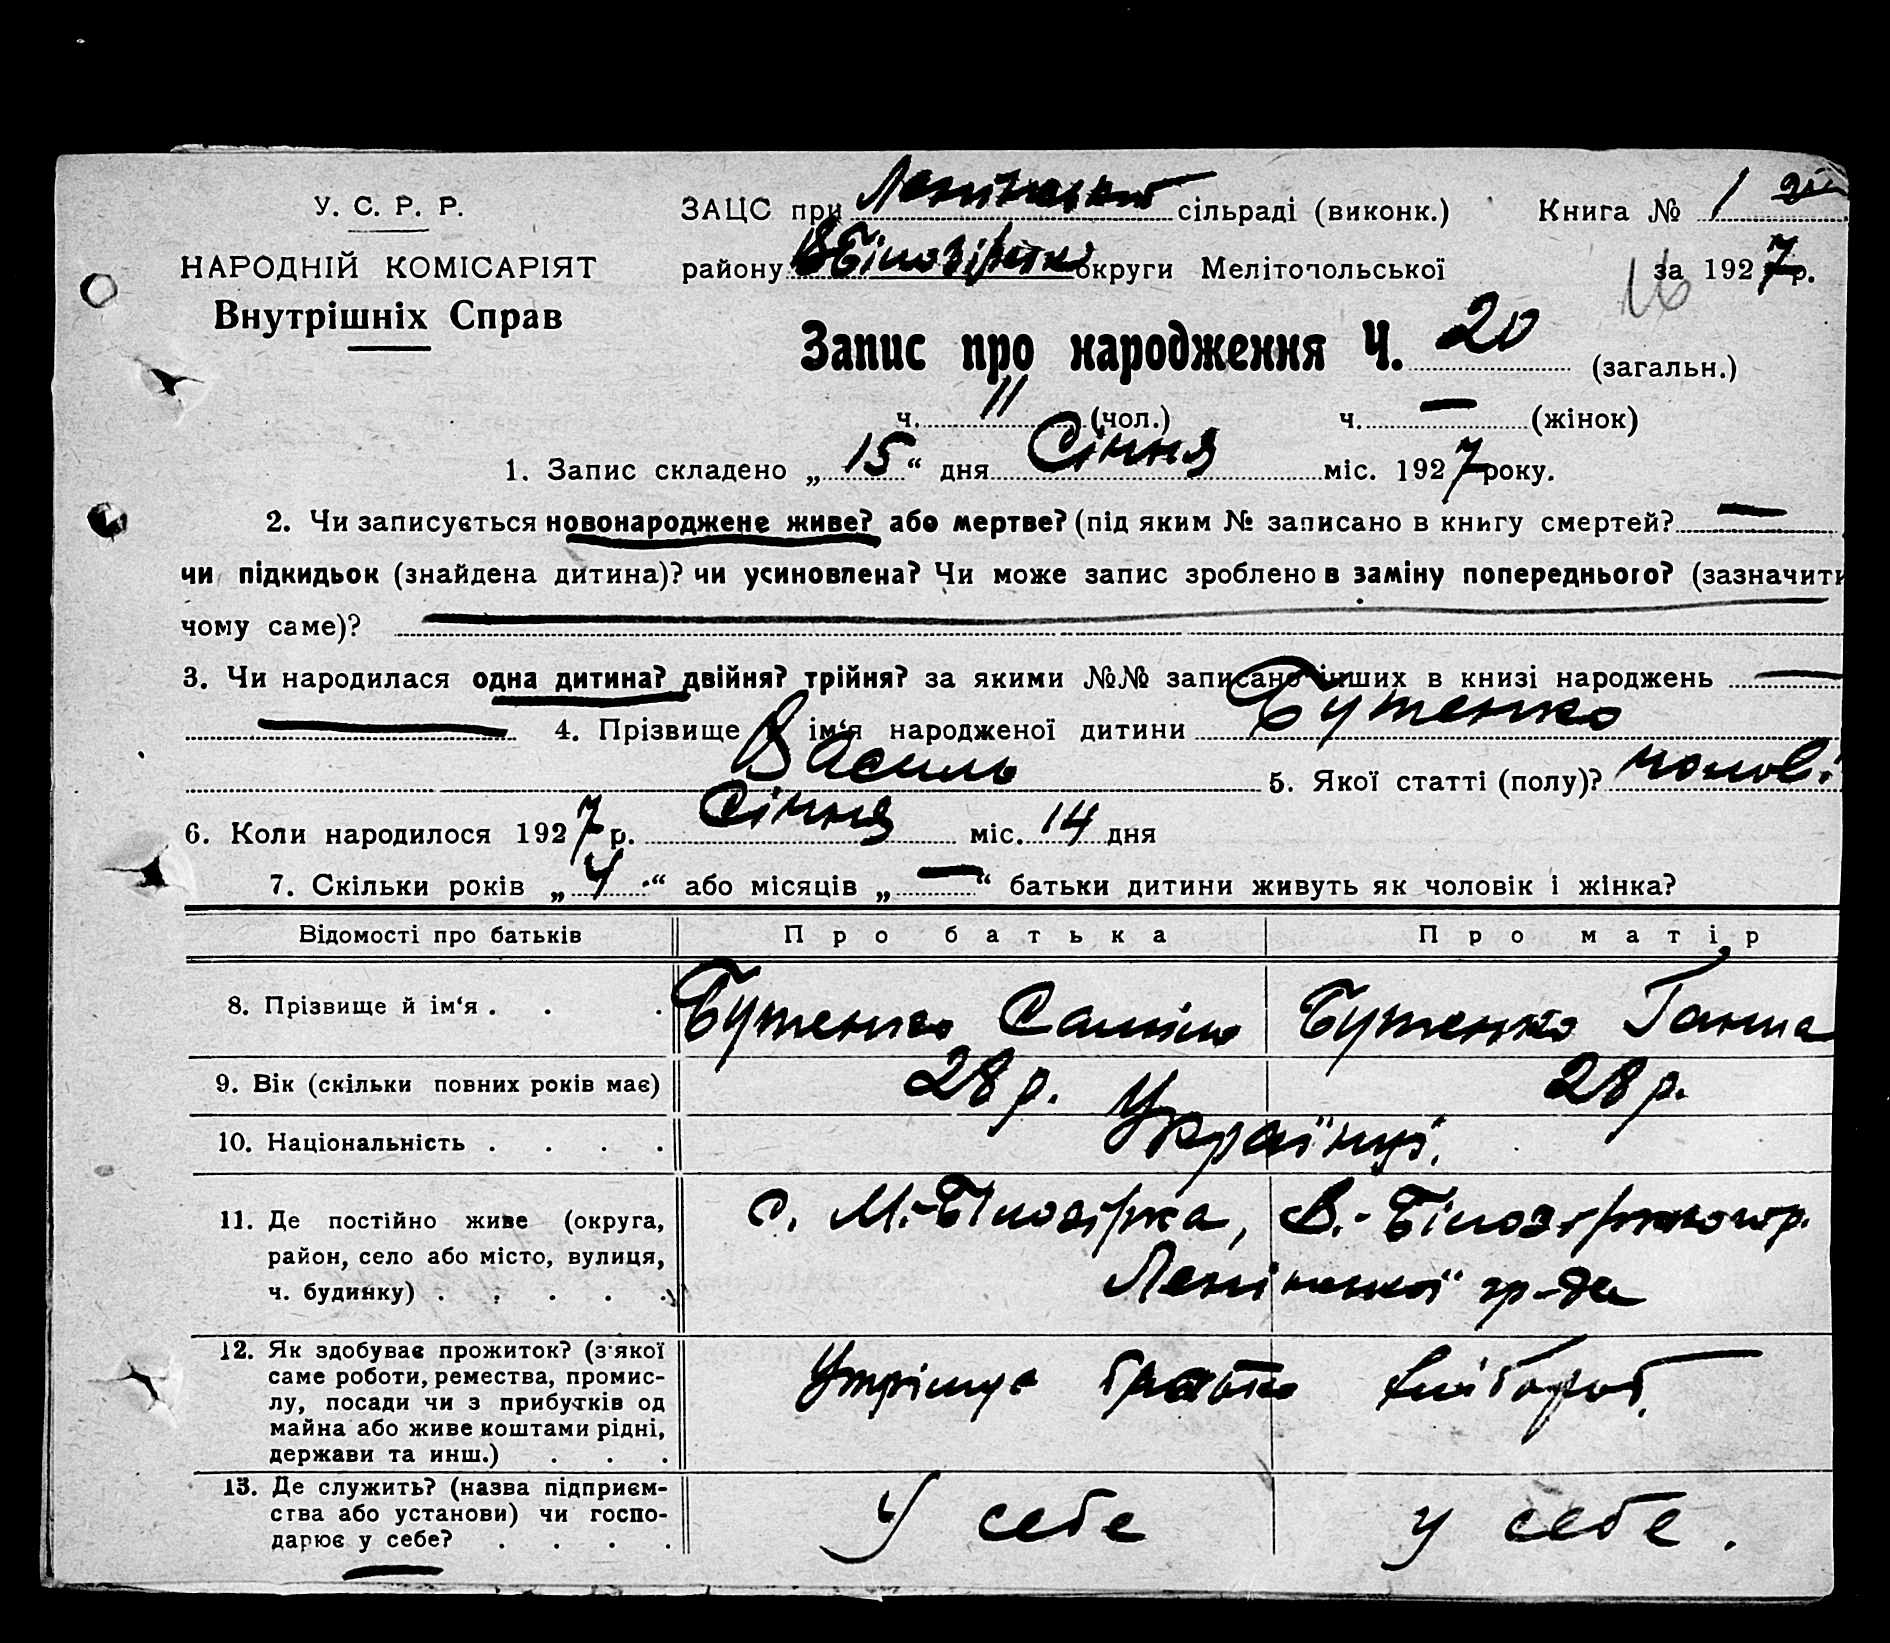 У. С. Р. Р.
НАРОДНІЙ КОМІСАРІЯТ
Внутрішніх Справ
ЗАЦС при сільраді (виконк.) Книга № 1
району округи Мелітопольської за 1927 р.
16
Запис про народження Ч. 20 (загальн.)
ч. 11 (чол.) ч. — (жінок)
1. Запис складено „15“ дня Січня міс. 1927 року.
2. Чи записується новонароджене живе? або мертве? (під яким № записано в книгу смертей? —
чи підкидьок (знайдена дитина)? чи усиновлена? Чи може запис зроблено в заміну попереднього? (зазначити
чому саме)? —
3. Чи народилася одна дитина? двійня? трійня? за якими №№ записано інших в книзі народжень —
— 4. Прізвище й ім‘я народженої дитини Бутенко
Василь 5. Якої статті (полу)? чолов.
6. Коли народилося 1927 р. Січня міс. 14 дня
7. Скільки років „4“ або місяців „—“ батьки дитини живуть як чоловік і жінка?
Відомості про батьків Про батька Про матір
8. Прізвище й ім‘я . . . Бутенко Бутенко Ганна
9. Вік (скільки повних років має) 28 р. 28 р.
10. Національність . . . . Українці.
11. Де постійно живе (округа,
район, село або місто, вулиця,
ч. будинку) . . . . .
с. М.-Білозірка, В.-Білозірського р.
Ленінської
12. Як здобуває прожиток? (з'якої
саме роботи, ремества, промис-
лу, посади чи з прибутків од
майна або живе коштами рідні,
держави та инш.) . . .
13. Де служить? (назва підприєм-
ства або установи) чи госпо-
дарює у себе? . . . .
У себе у себе.